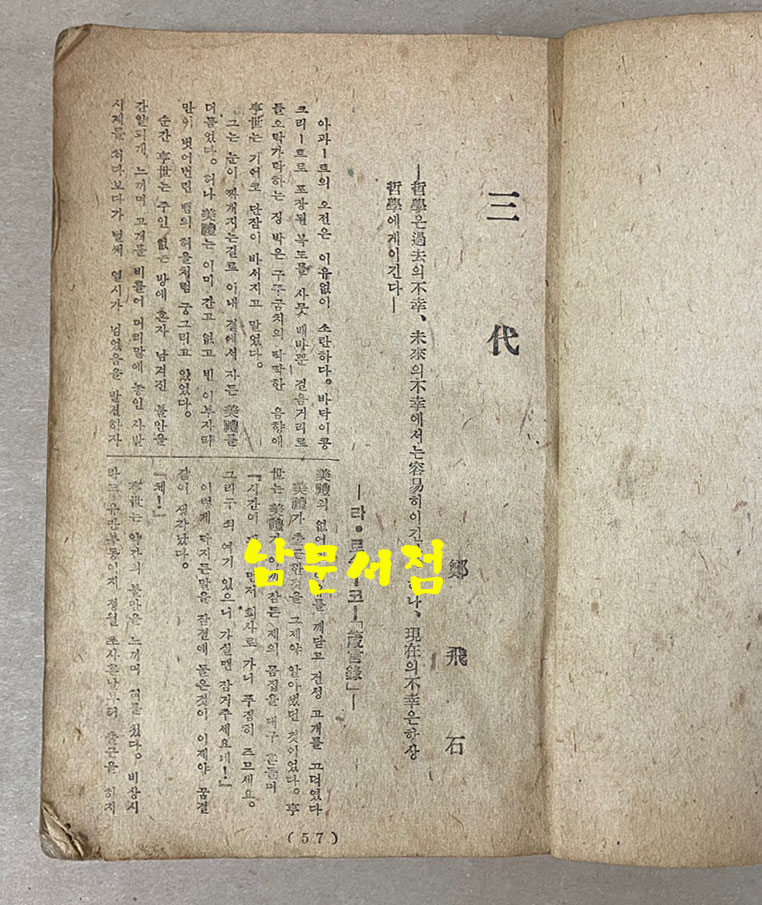 三代
鄭飛石
―哲學은過去의不幸、未來의不幸에서는容易히이긴 나、現在의不幸은하상
哲學에게이긴다―
―라・로 코―「箴言錄」―
아파―트의 오전은 이유없이 소란하다。바닥이콩
크리―트로 포장된 복도를 사뭇 배바쁜 걸음거리로
들으락가락하는 징 박은 구두굼치의 딱딱한 음향에
亨世는 기어코 단잠이 바서지고 말었다。
그는 눈이 째개지는길로 이내 곁에서 자든 美禮를
더듬었다。허나 美禮는 이미 간고 없고 빈 이부자리
만이 벗어버린 뱀의 허울처럼 궁그리고 있었다。
순간 亨世는 주인 없는 방에 혼자 남겨진 불안을
간얄피게 느끼며 고개를 비틀어 머리맡에 놓인 사발
시계를 처다보다가 벌써 열시가 넘었음을 발견하자
美禮의 없어 를 깨닫고 건성 고개를 끄덕였다
美禮가 출근한것을 그제야 알아챘던 것이었다。亨
世는 美禮가 잠든 제의 몸집을 대구 흔들며
『시간이 먼저 회사로 가니 푸접히 즈므세요。
그리구 죄 여기 있으니 가실땐 잠거주세요네!』
이렇게 다지든말을 잠결에 들은것이 이제야 꿈결
같이 생각났다。
『체!』
亨世는 약간의 불안을 느끼며 혀를 찼다。비상시
라고 유만부동이지 정월 초사흘날부터 출근을 하지
(57)
남문서점